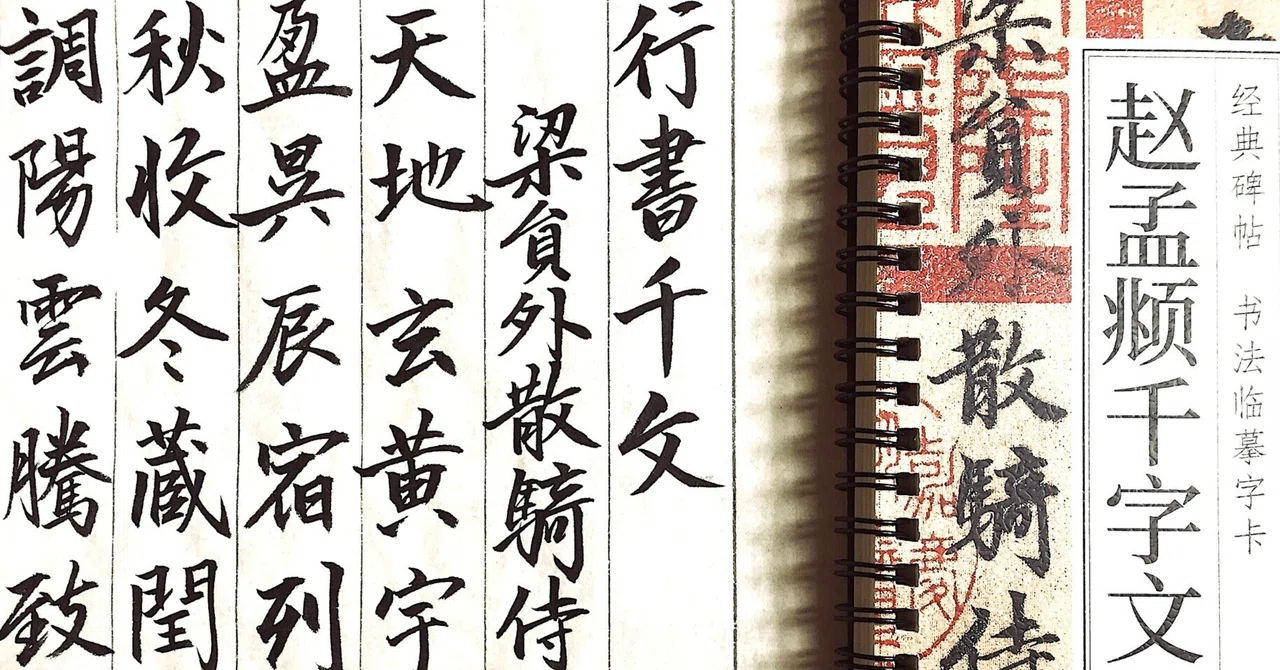 经典碑帖 书法临摹字卡
赵孟𫖯千字文
梁員外散騎侍
行書千文
梁員外散騎侍
天地玄黄宇
盈昃辰宿列
秋收冬藏閏
調陽雲騰致